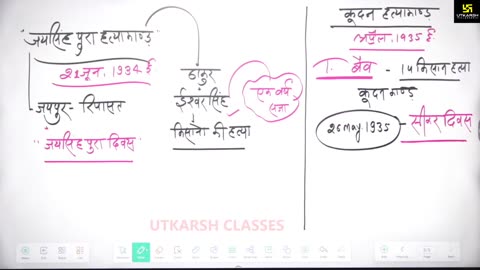 "जयसिंह पुरा हत्याकाण्ड"
21 जून, 1934 ई
जयपुर - रियासत
"जयसिंह पुरा दिवस"
ठाकुर
ईश्वरसिंह
किसानों की हत्या
एक वर्ष
सजा
कूदन हत्याकाण्ड
अप्रैल, 1935 ई
T. वैव - 14 किसान हत्या
कूदन काण्ड
26 May, 1935 - सीकर दिवस
UTKARSH CLASSES
UTKARSH CLASSES